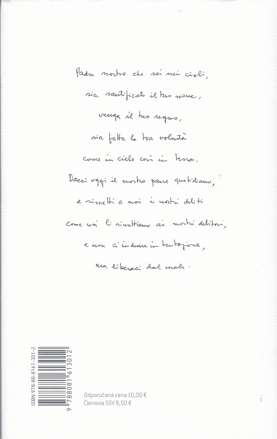 Padre nostro che sei nei cieli,
sia santificato il tuo nome,
venga il tuo regno,
sia fatta la tua volontà
come in cielo così in terra.
Dacci oggi il nostro pane quotidiano,
e rimetti a noi i nostri debiti
come noi li rimettiamo ai nostri debitori,
e non ci indurre in tentazione,
ma liberaci dal male.
ISBN 978-80-8161-301-2
9 788081 613012
Odporúčaná cena 10,00 €
Členovia SSV 8,50 €